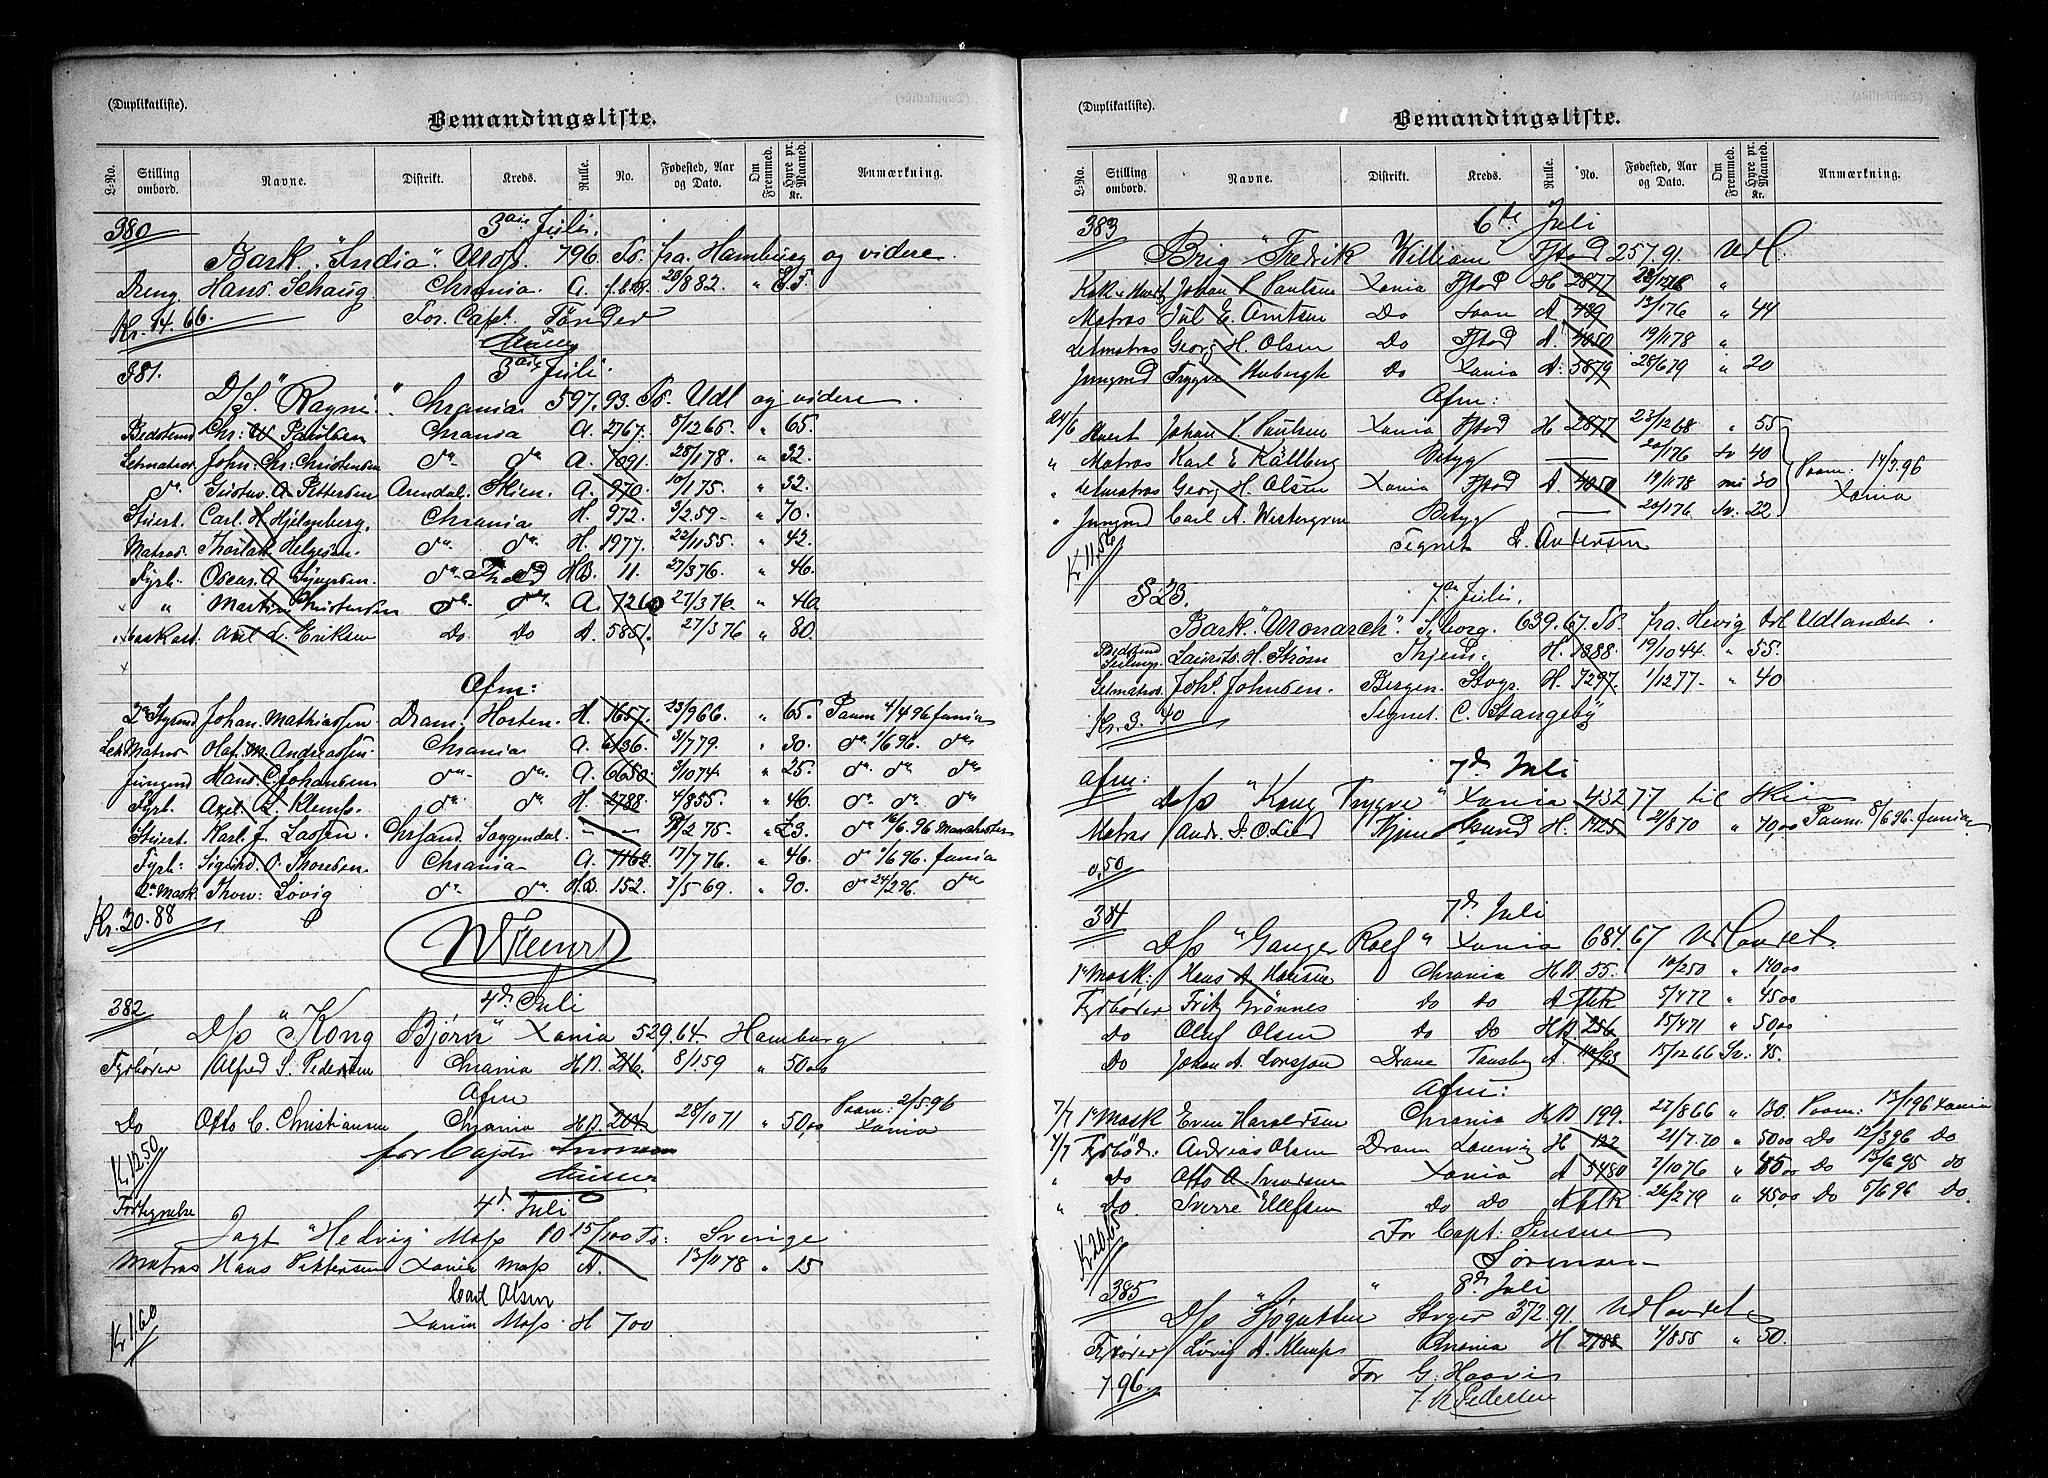 (Duplikatliste).
Bemandingsliste.
L-No. Stilling ombord. Navne. Distrikt. Kreds. Rulle. No. Fødested, Aar og Dato. Om Fremmed. Hyre pr. Maaned. Kr. Anmærkning.
380 3die Juli.
Bark. "India". Moss. 796 To. fra Hamburg og videre.
Dreng Hans Schaug Chrania. A. f.b.R. 882. "
Kr. 14.66. For Capt. Tønder
Müller
381. 3die Juli.
D/S. "Ragna". Chrania 597.93 To. Udl og videre.
Bedstemd Chr: W Paulsen Chrania A. 2767. 5/12 65. " 65.
Letmatros John: Chr: Christensen do do A. 7091. 28/1 78. " 32.
do Gustav. A Pettersen Arendal. Skien. A. 970. 10/1 75. " 32.
Stuert. Carl. H. Hjelmberg. Chrania H. 972. 9/2 59. " 70.
Matros Thorlak Helgesen. do do H. 1977. 22/11 55. " 42.
Fyrb. Oscar. A do HB. 11. 27/3 76. " 46.
" Martin Christensen do do A. 7260 27/3 76. " 40.
Axel L. Eriksen Do Do A. 5851. 27/3 76 " 80.
Afm:
2n Styrmd Johan. Mathiassen Dram: Horten. H. 1657. 23/9 66. " 65. Paam 4/4 96 Xania
Let Matros Olaf. M. Andreassen. Chrania A. 6136. 3/7 79. " 30. do 1/6 96. do
Jungmd Hans. C. Johansen do do A. 6650. 3/10 74. " 25. do do do
Fyrb. Axel. L. Klemp. do do H. 2788. 4/8 55. " 46. do do do
Stuert. Karl. J. Lassen. Chrsand. Soggendal. — — 2 75. " do 16/6. 96 Manchester
Fyrb: Sigurd. O. Thoresen. Chrania A. 7162. 17/7 76. " 46. do 1/6 96. Xania
2n Mask. Thorv: Løvig do do H.B. 152. 3/5 69. " 90. do 24/2 96. do
Kr. 20.88
382 4de Juli
D/s "Kong Bjørn" Xania 529.64 Hamburg
Fyrbøder Alfred S. Pedersen Chrania H.B. 216. 8/1 59 " 50,00
Afm
Do Otto C. Christiansen Chrania H.B. 28/10 71 " 50,00 Paam: 2/5.96 Xania
Kr 12.50 for Capt
Müller
Fortegnelse 4d Juli
Jagt "Hedvig" Moss 10 15/100 To: Sverige
Matros Hans Pettersen Xania Moss A. 13/11 78 " 15
Carl Olsen
Kr 1,60 Xania Moss H 700
(Duplikatliste).
Bemandingsliste.
L-No. Stilling ombord. Navne. Distrikt. Kreds. Rulle. No. Fødested, Aar og Dato. Om Fremmed. Hyre pr. Maaned. Kr. Anmærkning.
383 6te Juli
Brig "Fredrik William Fstad 257.91 Udl.
Kok & Stuert Johan P. Paulsen Xania Fstad H 2877 "
Matros Jul E. Arntsen Do Soon A 489 13/1 76 " 44
Letmatros Georg H. Olsen Do Fstad A. 4050 19/11 78 "
Jungmd Trygve Stubergh Do Xania A. 5879 28/6 79 " 20
Afm:
24/6 Stuert Johan P. Paulsen Xania Fstad H 2877 23/12 68 " 55
" Matros Karl E Källberg Betyg — 20/1 76 Sv 40 Paam: 14/3.96
" Letmatros Georg H. Olsen Xania Fstad A. 4050 19/11 78 30 Xania
" Jungmd Carl A. Westergren Betyg — 20/1 76 Sv. 22
Kr 11.56 Tegnet L. Andersen
§ 23. 7de Juli.
Bark. "Monarch". S.borg. 639.67 To. fra Hevig til Udlandet.
Bedstemd Seilmgr. Laurits. H. Strøm Thjem. H. 1388. 19/10 44. " 55.
Letmatros. Johs. Johnsen. Bergen. H. 7297. 1/12 77. " 40
Kr. 3.40 Tegnet. C. Stangeby
afm: 7d Juli
D/s "Kong Trygve" Xania 432 77 til Skien
Matros Andr. D. O. Lied H. 1425 21/8 70 " 70,00 Paam. 8/6 96. Xania
0.50
384 7d Juli
D/s "Ganger Rolf" Xania 684.67 Udlandet
1n Mask. Hans A Hansen Chrania H.B 55. 10/2 50 " 140,00
Fyrbøder Fritz Grønnes Do Do A fblk 5/4 72 " 45,00
Do Oluf Olsen Do Do H.B 256 15/4 71 " 50,00
Do Johan A. Dram Tønsbg A. 15/12 66 Sv: 45.
Afm:
7/7 1n Mask Even Haraldsen Chrania H.B 199. 27/8 66 " 130. Paam: 13/1 96 Xania
4/7 Fyrbød. Andreas Olsen Dram Laurvig H 122 21/7.70 " 50,00 Do 12/3 96 Do
" Do Otto A. Xania A 5480 7/10 76 " 45,00 Do 15/6 95 Do
" Do. Sverre Ellefsen Do Do A fblk 26/2 79 " 45,00 Do 5/6 96 Do.
Kr 20,65 For Capt. Jensen
Sørensen
385 8d Juli
D/s "Sjøgutten 372.91. Udlandet
Fyrbøder Løvig A. Klemp Chrania H 2788 4/8 55 " 50.
7.96. For G. Haavi
Pedersen